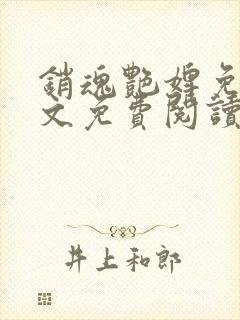 銷魂艷婢免
文免費閱讀
井上和郎